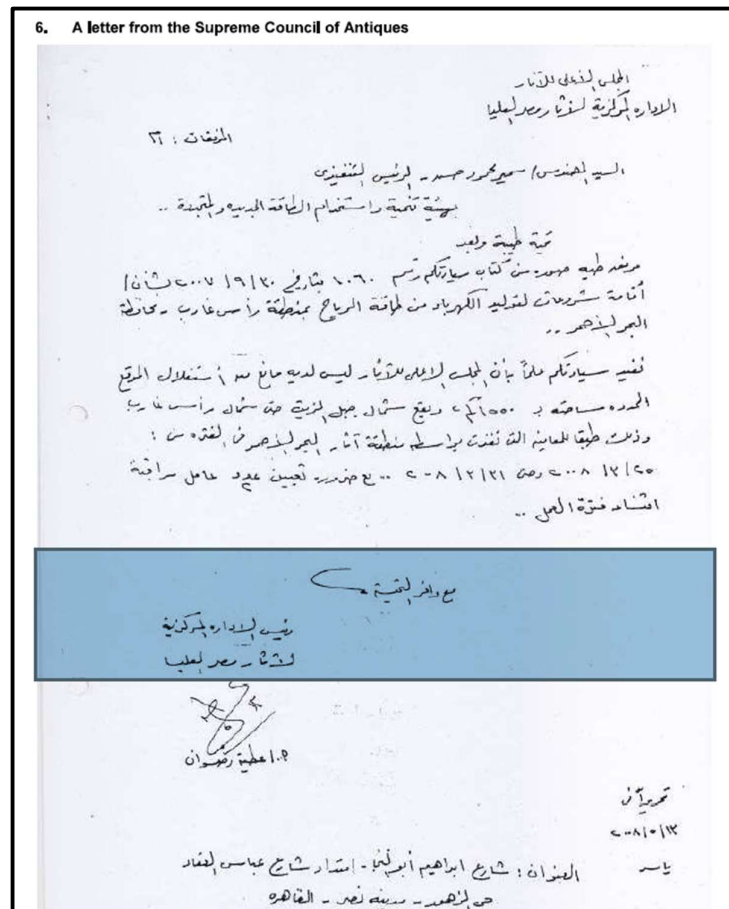 6. A letter from the Supreme Council of Antiques
المجلس الأعلى للآثار
الإدارة المركزية لآثار مصر العليا
المرفقات : ٢١
السيد المهندس / سمير محمود حسن - الرئيس التنفيذى
بهيئة تنمية واستخدام الطاقة الجديدة والمتجددة ..
تحية طيبة وبعد
مرفق طيه صورة من كتاب سيادتكم رقم ١٠٦٠ بتاريخ ٢٠٠٧/٩/٣٠ بشأن /
أقامة مشروعات لتوليد الكهرباء من طاقة الرياح بمنطقة رأس غارب - محافظة
البحر الأحمر ..
نفيد سيادتكم علماً بأن المجلس الاعلى للآثار ليس لديه مانع من أستغلال الموقع
المحدد مساحته بـ ١٥٥٠ كم٢ ويقع شمال جبل الزيت حتى شمال رأس غارب
وذلك طبقا للمعاينه التى نفذت بواسطه منطقة آثار البحر الأحمر فى الفتره من :
٢٠٠٨/٣/٢٥ وحتى ٢٠٠٨/٣/٣١ .. مع ضرورة تعيين عدد عامل مراقبة
اثناء فترة العمل ..
مع وافر التحية
رئيس الاداره المركزية
لآثار مصر العليا
أ.م عطية رضوان
تحريرآ فى
٢٠٠٨/٥/١٣
ياسر
العنوان : شارع ابراهيم أبو النجا - امتداد شارع عباس العقاد
حى الزهور - مدينه نصر - القاهره